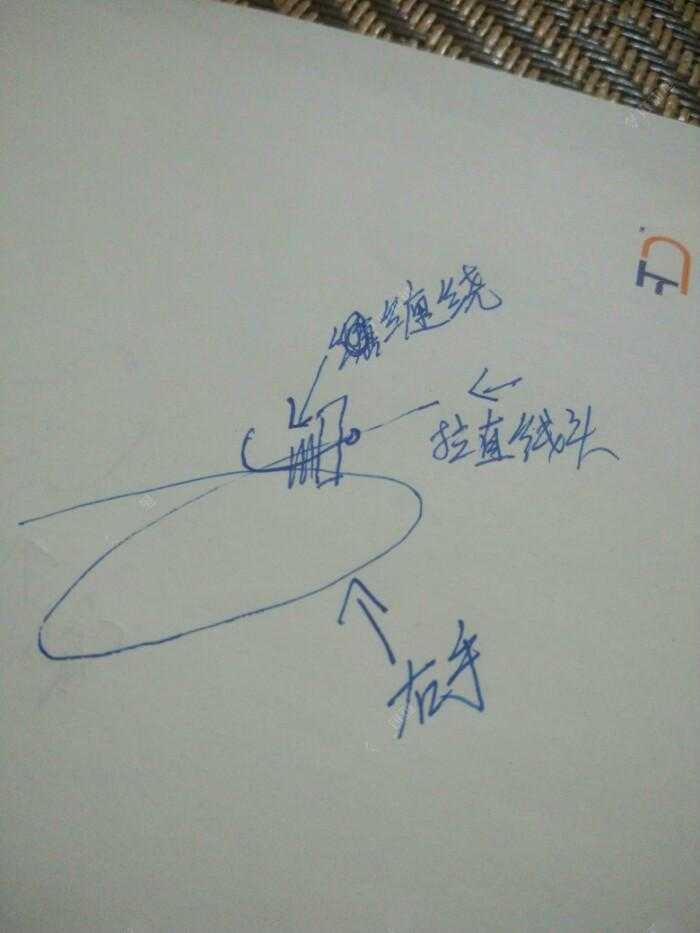 缠绕
拉直线头
右手